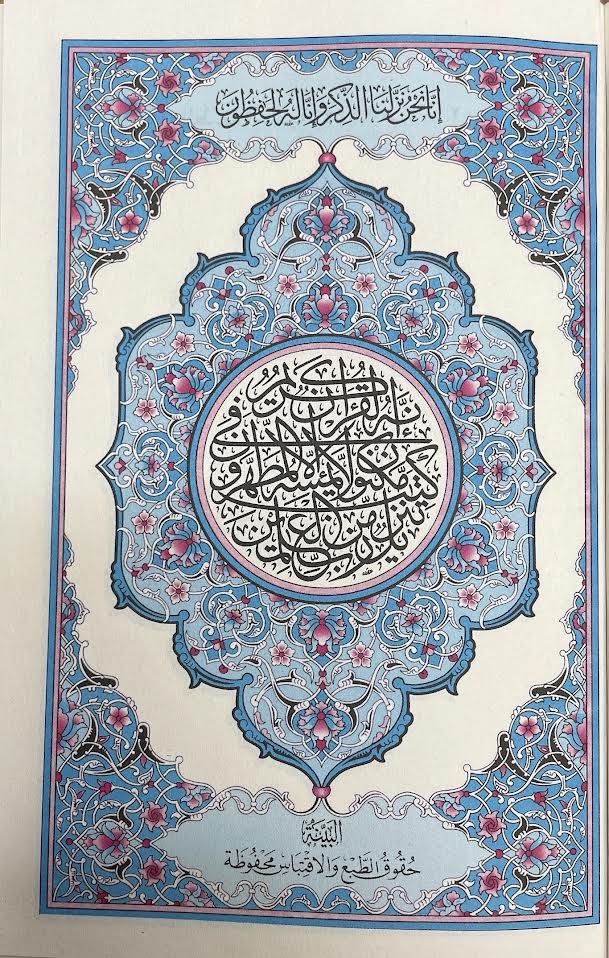 إنا نحن نزلنا الذكر وإنا له لحفظون
إنه لقرآن كريم
في كتب مكنون لا يمسه إلا المطهرون
تنزيل من رب العلمين
البينة
حقوق الطبع والاقتباس محفوظة